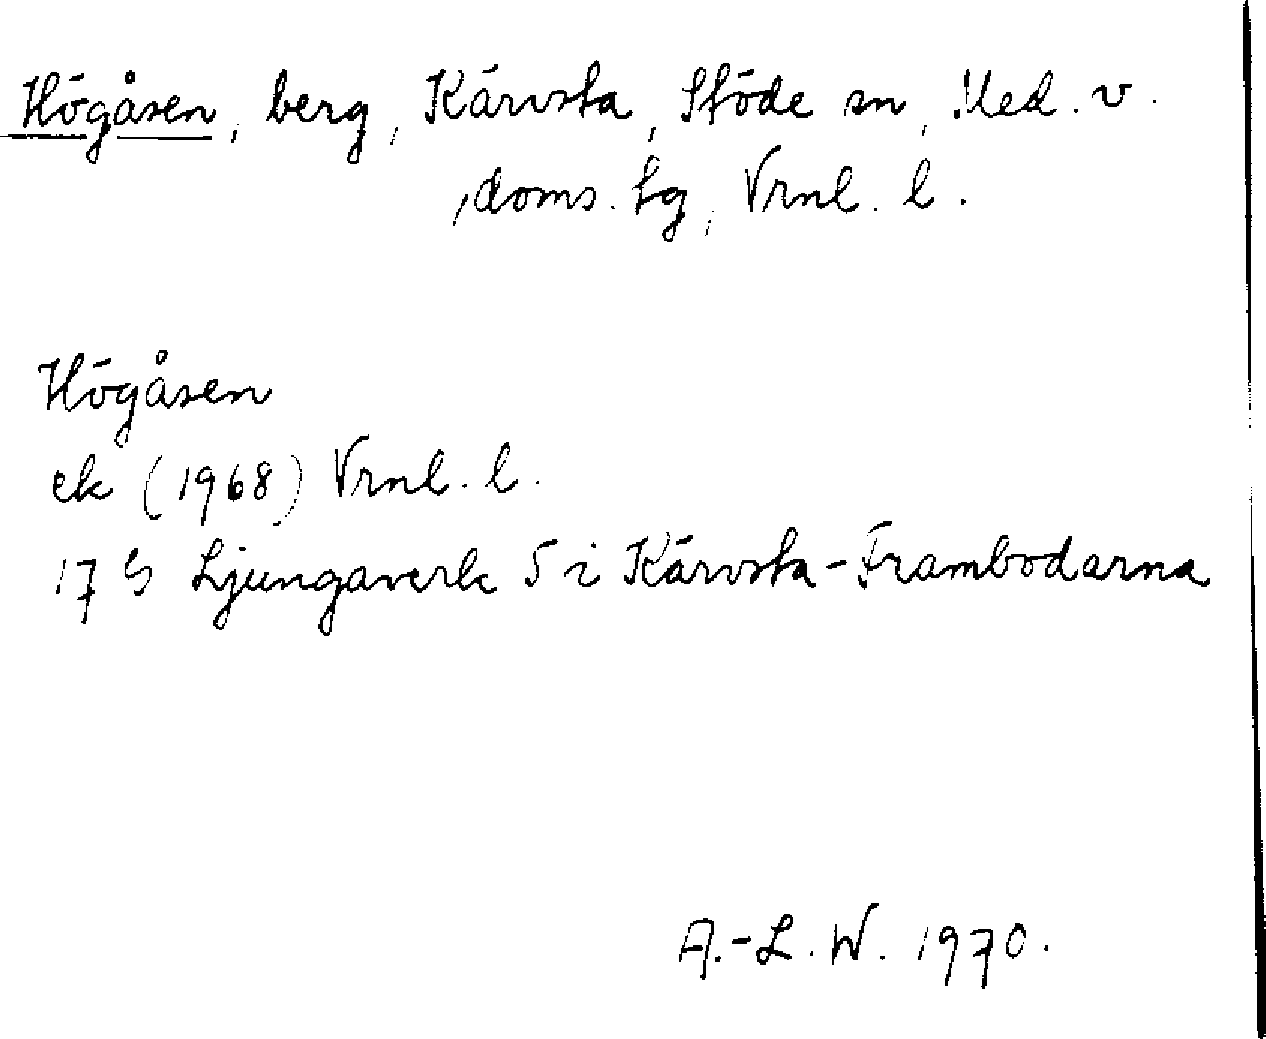 Högåsen, berg, Kärvsta, Stöde sn, Med. v.
doms. hg, Vrnl. l.
Högåsen
ek (1968) Vrnl. l.
17 G Ljungaverk 5 i Kärvsta-Frambodarna
A.-L. W. 1970.